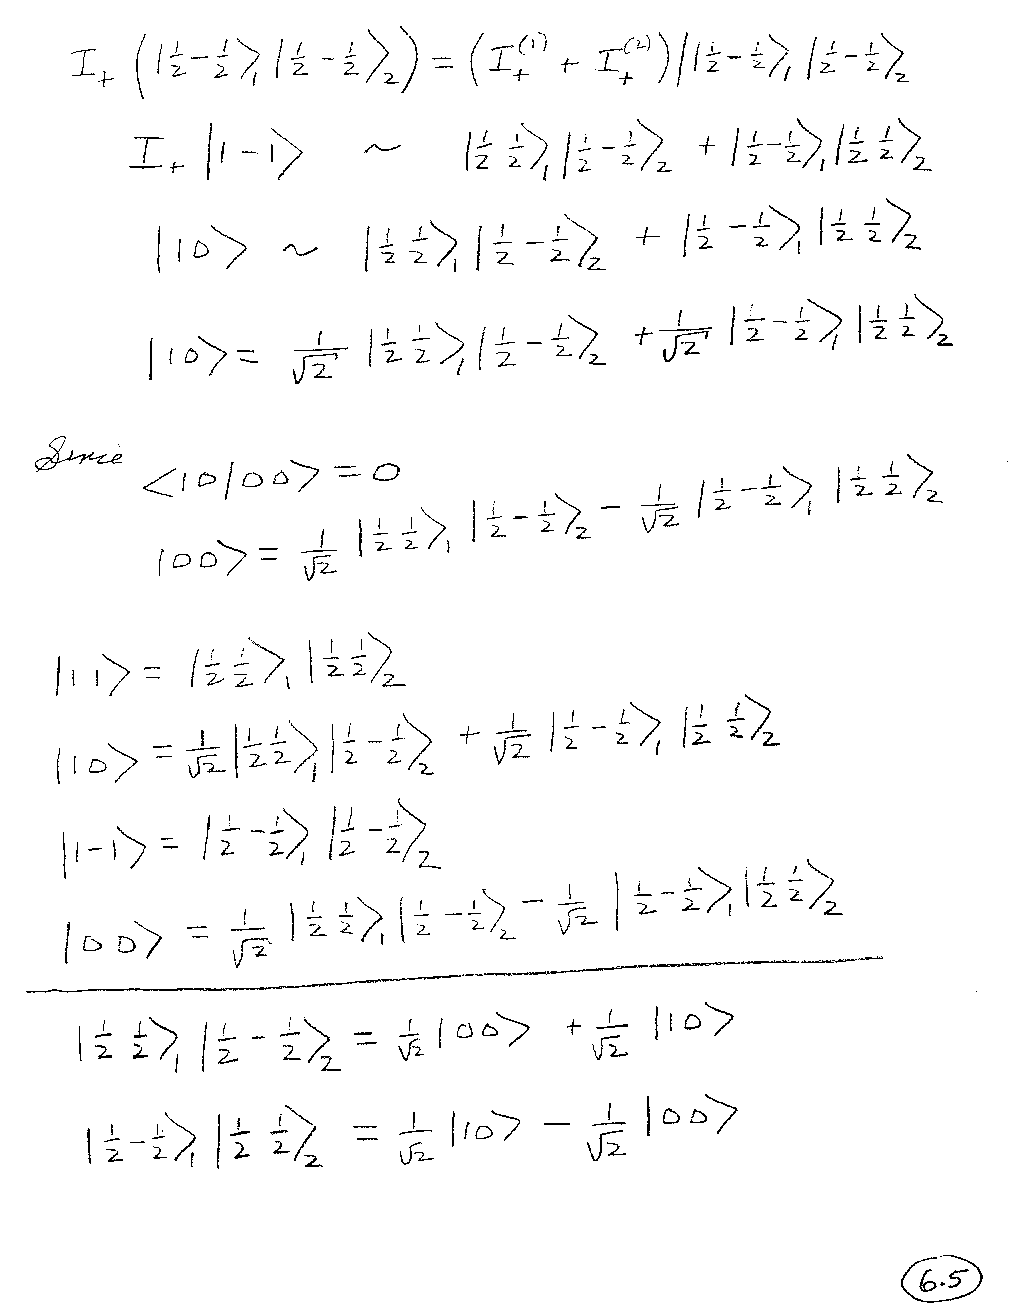 I₊ (|½ -½⟩₁ |½ -½⟩₂) = (I₊⁽¹⁾ + I₊⁽²⁾) |½ -½⟩₁ |½ -½⟩₂
I₊ |1 -1⟩ ~ |½ ½⟩₁ |½ -½⟩₂ + |½ -½⟩₁ |½ ½⟩₂
|10⟩ ~ |½ ½⟩₁ |½ -½⟩₂ + |½ -½⟩₁ |½ ½⟩₂
|10⟩ = 1/√2 |½ ½⟩₁ |½ -½⟩₂ + 1/√2 |½ -½⟩₁ |½ ½⟩₂
Since
⟨10|00⟩ = 0
|00⟩ = 1/√2 |½ ½⟩₁ |½ -½⟩₂ - 1/√2 |½ -½⟩₁ |½ ½⟩₂
|11⟩ = |½ ½⟩₁ |½ ½⟩₂
|10⟩ = 1/√2 |½ ½⟩₁ |½ -½⟩₂ + 1/√2 |½ -½⟩₁ |½ ½⟩₂
|1-1⟩ = |½ -½⟩₁ |½ -½⟩₂
|00⟩ = 1/√2 |½ ½⟩₁ |½ -½⟩₂ - 1/√2 |½ -½⟩₁ |½ ½⟩₂
|½ ½⟩₁ |½ -½⟩₂ = 1/√2 |00⟩ + 1/√2 |10⟩
|½ -½⟩₁ |½ ½⟩₂ = 1/√2 |10⟩ - 1/√2 |00⟩
6.5